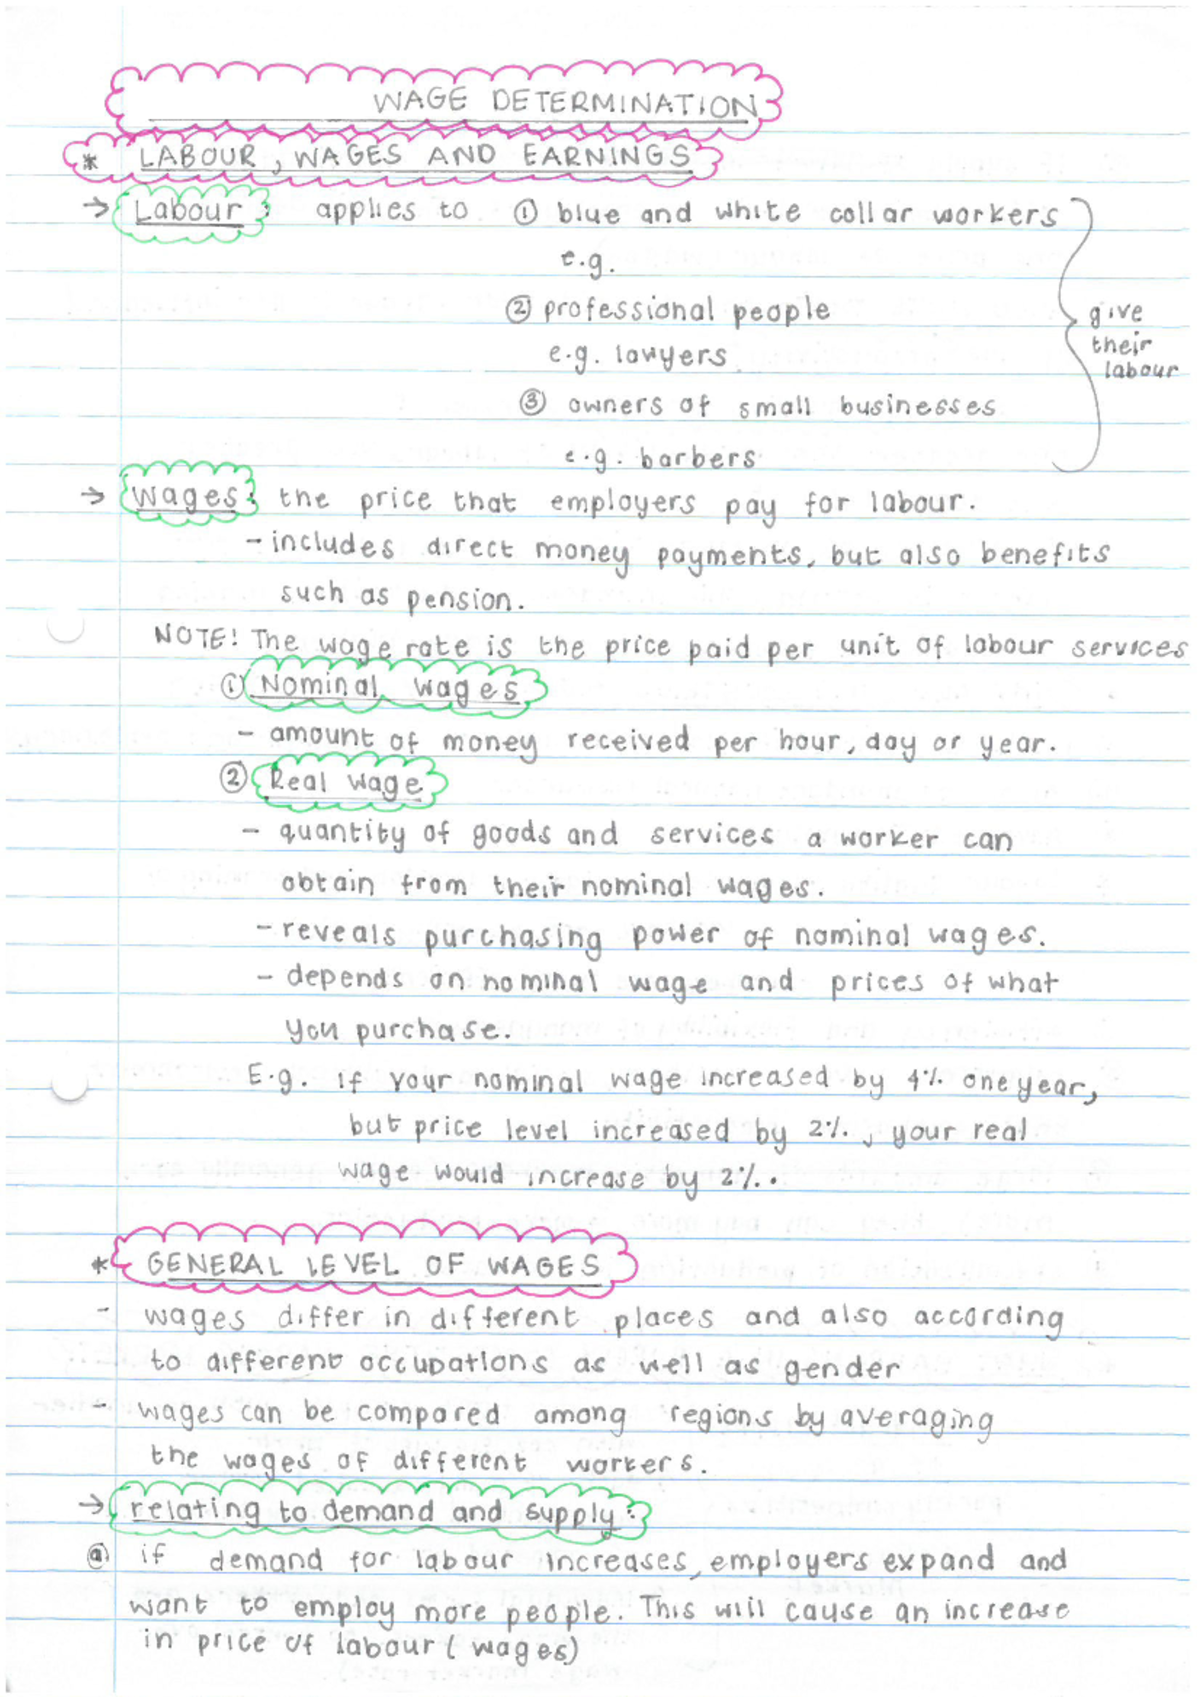 WAGE DETERMINATION
* LABOUR, WAGES AND EARNINGS
→ Labour: applies to ① blue and white collar workers
e.g.
② professional people
e.g. lawyers
③ owners of small businesses
e.g. barbers
give
their
labour
→ Wages: the price that employers pay for labour.
- includes direct money payments, but also benefits
such as pension.
NOTE! The wage rate is the price paid per unit of labour services
① Nominal wages
- amount of money received per hour, day or year.
② Real wage
- quantity of goods and services a worker can
obtain from their nominal wages.
- reveals purchasing power of nominal wages.
- depends on nominal wage and prices of what
you purchase.
E.g. if your nominal wage increased by 4% one year,
but price level increased by 2%, your real
wage would increase by 2%.
* GENERAL LEVEL OF WAGES
- wages differ in different places and also according
to different occupations as well as gender
- wages can be compared among regions by averaging
the wages of different workers.
→ relating to demand and supply:
ⓐ if demand for labour increases, employers expand and
want to employ more people. This will cause an increase
in price of labour (wages)